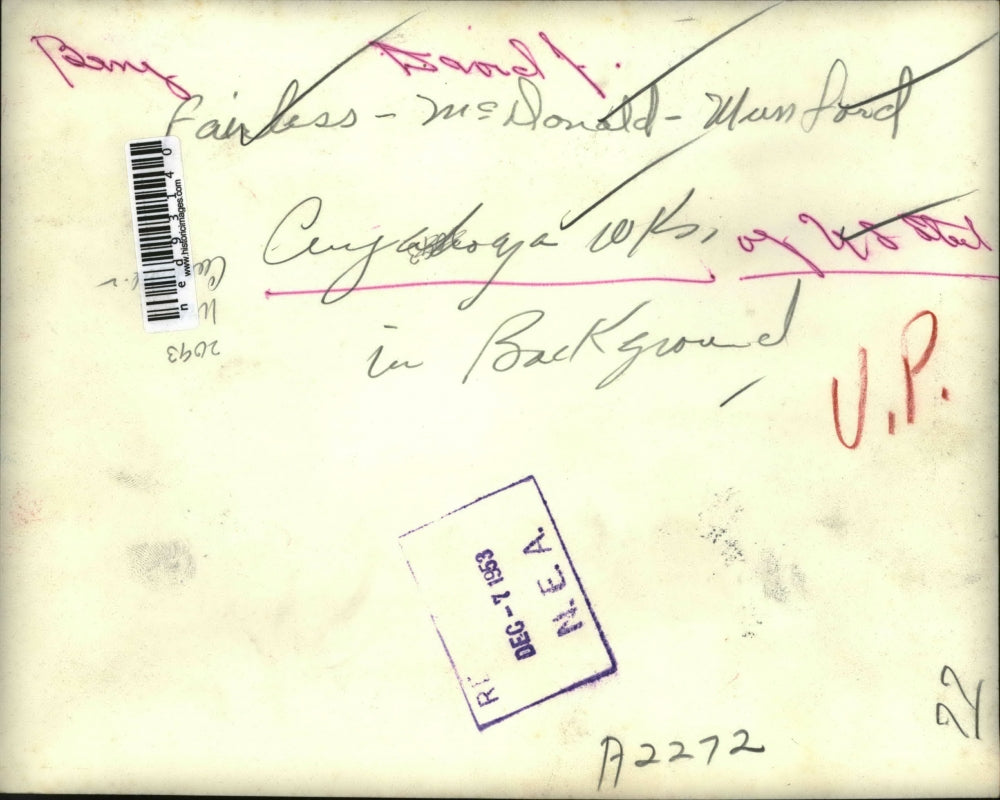 Benj David J.
Fairless - McDonald - Munford
Cuyahoga Wks, of U S Steel
in Background
U.P.
ned93140
www.historicimages.com
2093
DEC - 7 1953
N.E.A.
A2272
22